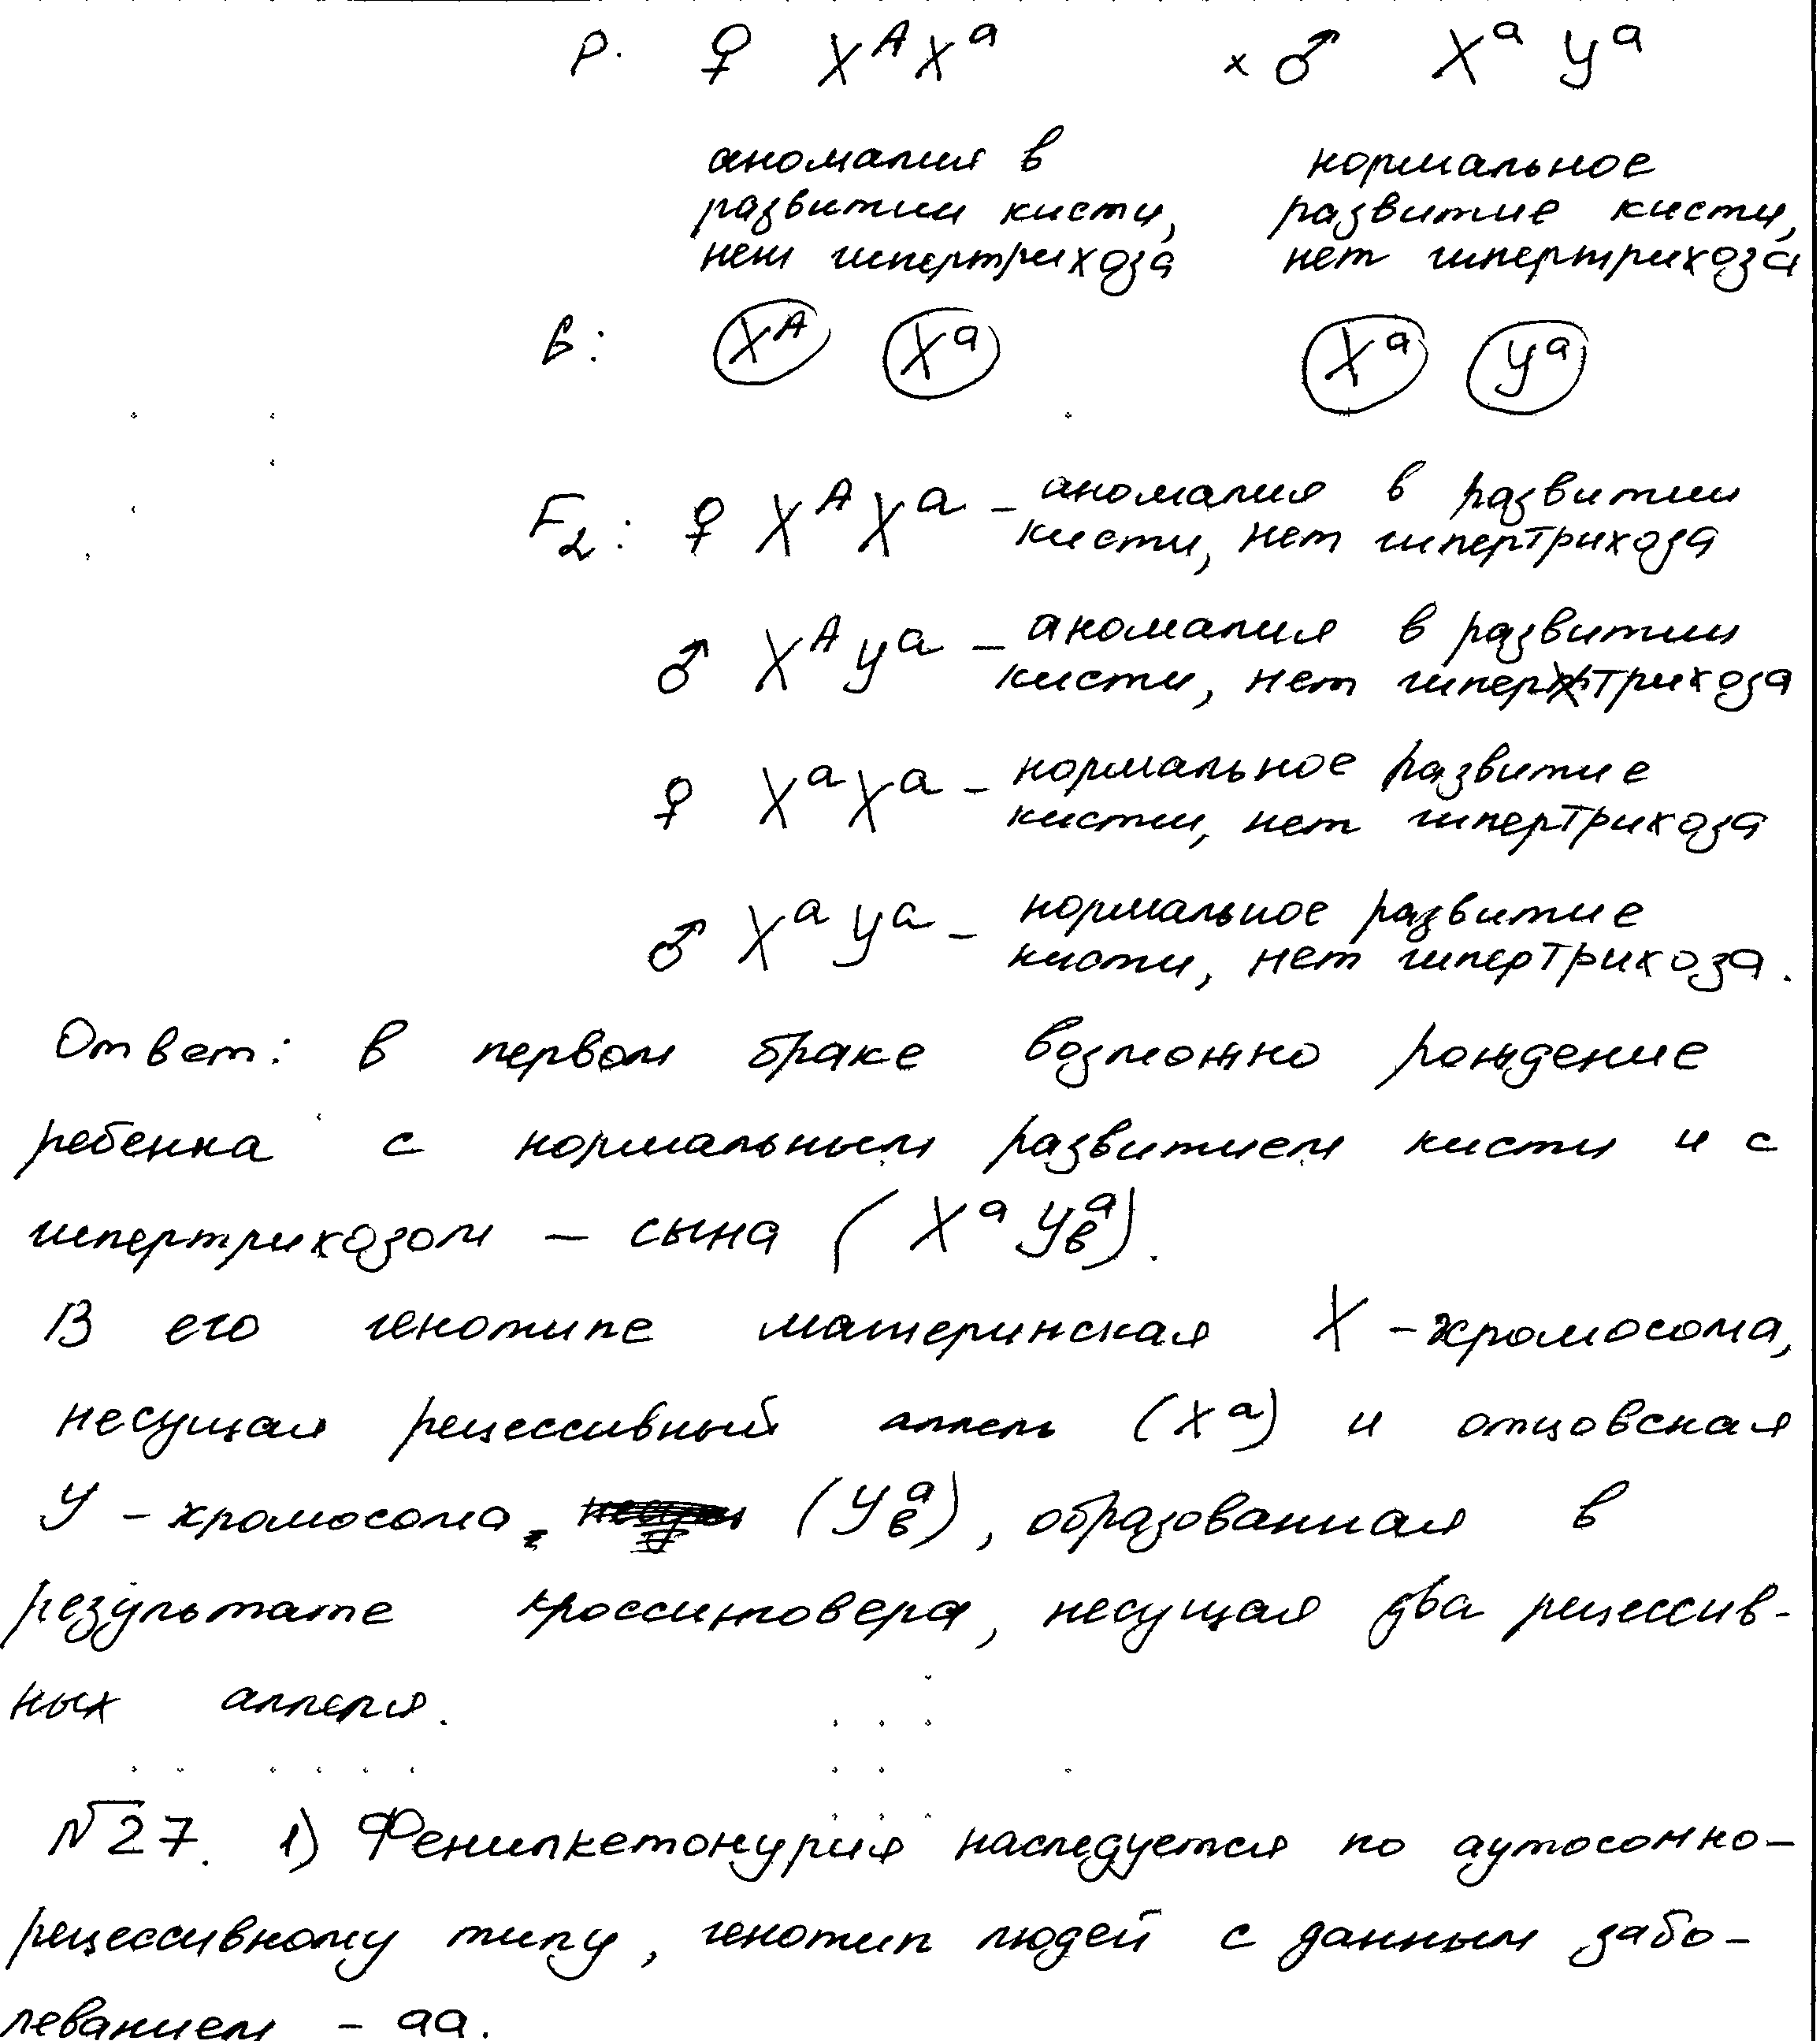 P. ♀ XᴬXᵃ x ♂ XᵃYᵃ
аномалия в нормальное
развитии кисти, развитие кисти,
нет гипертрихоза нет гипертрихоза
G: Xᴬ Xᵃ Xᵃ Yᵃ
F₂: ♀ XᴬXᵃ – аномалия в развитии
кисти, нет гипертрихоза
♂ XᴬYᵃ – аномалия в развитии
кисти, нет гипертрихоза
♀ XᵃXᵃ – нормальное развитие
кисти, нет гипертрихоза
♂ XᵃYᵃ – нормальное развитие
кисти, нет гипертрихоза.
Ответ: в первом браке возможно рождение
ребенка с нормальным развитием кисти и с
гипертрихозом – сына (XᵃYᵃв).
В его генотипе материнская X -хромосома,
несущая рецессивный аллель (xᵃ) и отцовская
Y – хромосома, (Yᵃв), образованная в
результате кроссинговера, несущая два рецессив-
ных аллеля.
№27. 1) Фенилкетонурия наследуется по аутосомно-
рецессивному типу, генотип людей с данным забо-
леванием – аа.